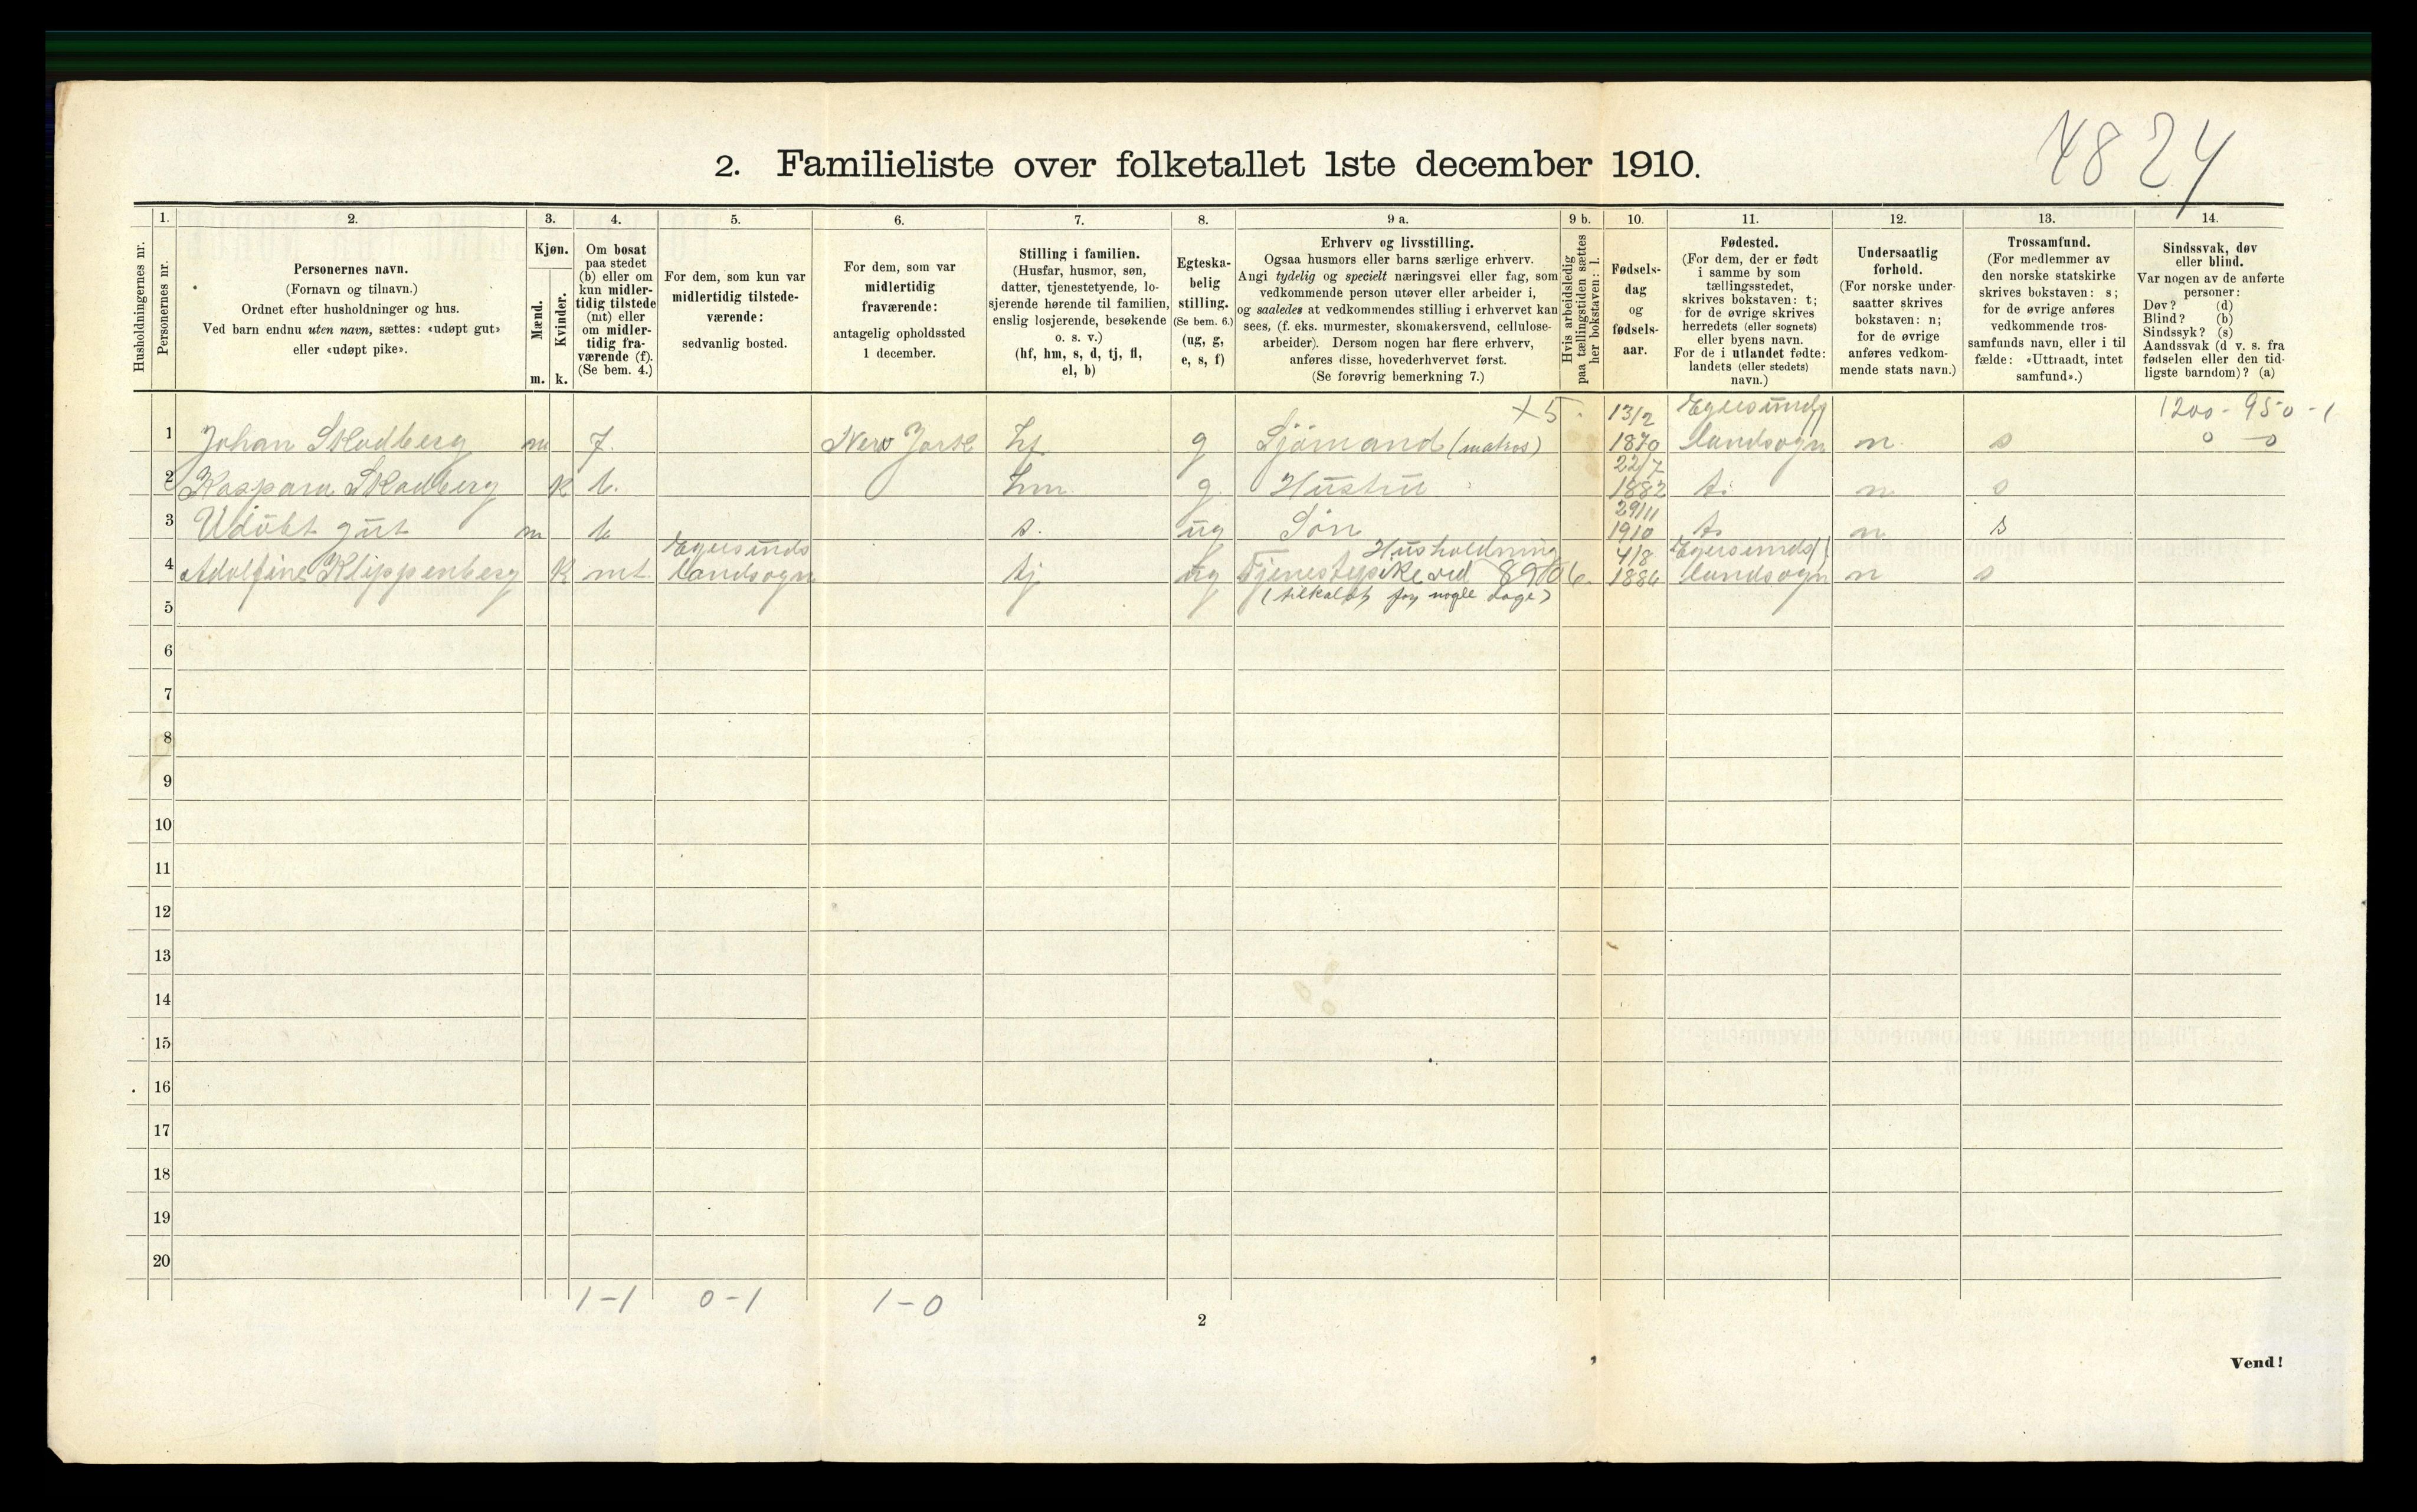 4824
2. Familieliste over folketallet 1ste december 1910.
Husholdningernes nr.
1.
Personernes nr.
2.
Personernes navn.
(Fornavn og tilnavn.)
Ordnet efter husholdninger og hus.
Ved barn endnu uten navn, sættes: «udøpt gut»
eller «udøpt pike».
3.
Kjøn.
Mænd.
Kvinder.
m. k.
4.
Om bosat
paa stedet
(b) eller om
kun midler-
tidig tilstede
(mt) eller
om midler-
tidig fra-
værende (f).
(Se bem. 4.)
5.
For dem, som kun var
midlertidig tilstede-
værende:
sedvanlig bosted.
6.
For dem, som var
midlertidig
fraværende:
antagelig opholdssted
1 december.
7.
Stilling i familien.
(Husfar, husmor, søn,
datter, tjenestetyende, lo-
sjerende hørende til familien,
enslig losjerende, besøkende
o. s. v.)
(hf, hm, s, d, tj, fl,
el, b)
8.
Egteska-
belig
stilling.
(Se bem. 6.)
(ug, g,
e, s, f)
9 a.
Erhverv og livsstilling.
Ogsaa husmors eller barns særlige erhverv.
Angi tydelig og specielt næringsvei eller fag, som
vedkommende person utøver eller arbeider i,
og saaledes at vedkommendes stilling i erhvervet kan
sees, (f. eks. murmester, skomakersvend, cellulose-
arbeider). Dersom nogen har flere erhverv,
anføres disse, hovederhvervet først.
(Se forøvrig bemerkning 7.)
9 b.
Hvis arbeidsledig
paa tællingstiden sættes
her bokstaven: l.
10.
Fødsels-
dag
og
fødsels-
aar.
11.
Fødested.
(For dem, der er født
i samme by som
tællingsstedet,
skrives bokstaven: t;
for de øvrige skrives
herredets (eller sognets)
eller byens navn.
For de i utlandet fødte:
landets (eller stedets)
navn.)
12.
Undersaatlig
forhold.
(For norske under-
saatter skrives
bokstaven: n;
for de øvrige
anføres vedkom-
mende stats navn.)
13.
Trossamfund.
(For medlemmer av
den norske statskirke
skrives bokstaven: s;
for de øvrige anføres
vedkommende tros-
samfunds navn, eller i til
fælde: «Uttraadt, intet
samfund».)
14.
Sindssvak, døv
eller blind.
Var nogen av de anførte
personer:
Døv? (d)
Blind? (b)
Sindssyk? (s)
Aandssvak (d v. s. fra
fødselen eller den tid-
ligste barndom)? (a)
+5. 13/2 Egersunds 1200-950-1
1 Johan Skadberg m f. New Jork hf. g Sjömand (matros) 1870 landsogn n. s 0 0
22/7
2 Kaspara Skadberg k b. hm. g. Hustru 1882 do n s
29/11
3 Udöbt gut m b s. ug Sön 1910 do n s
Egersunds Husholdning 4/8 Egersunds
4 Adolfine Klippenberg k mt landsogn tj ug Tjenestepike ved 1886 landsogn n s
5 (tilkaldt for nogle dage)
6
7
8
9
10
11
12
13
14
15
16
17
18
19
20
1-1 0-1 1-0
2
Vend!